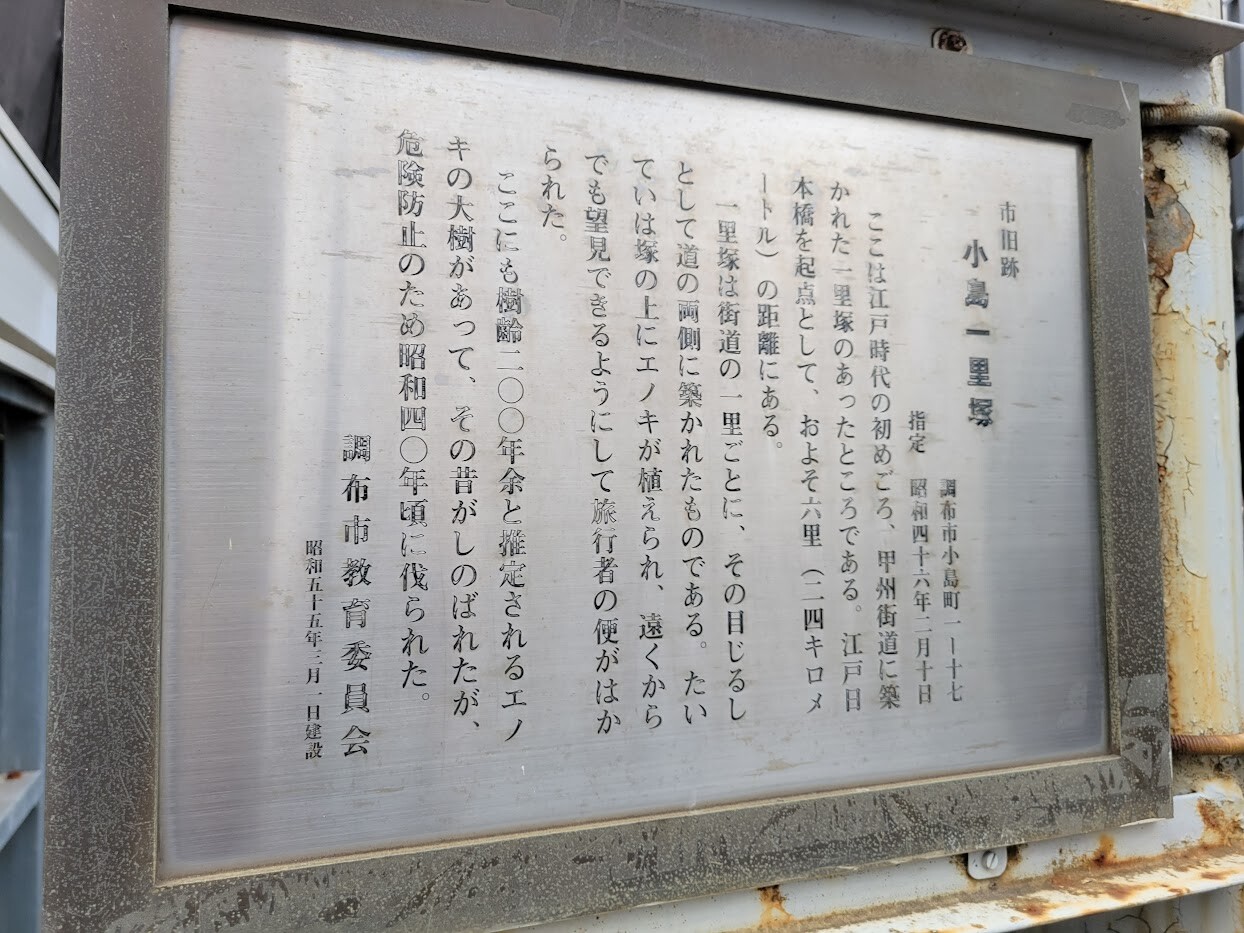 市旧跡
小島一里塚
調布市小島町一ー十七
指定 昭和四十六年二月十日
ここは江戸時代の初めごろ、甲州街道に築
かれた一里塚のあったところである。江戸日
本橋を起点として、およそ六里（二四キロメ
ートル）の距離にある。
一里塚は街道の一里ごとに、その目じるし
として道の両側に築かれたものである。たい
ていは塚の上にエノキが植えられ、遠くから
でも望見できるようにして旅行者の便がはか
られた。
ここにも樹齢二〇〇年余と推定されるエノ
キの大樹があって、その昔がしのばれたが、
危険防止のため昭和四〇年頃に伐られた。
調布市教育委員会
昭和五十五年三月一日建設